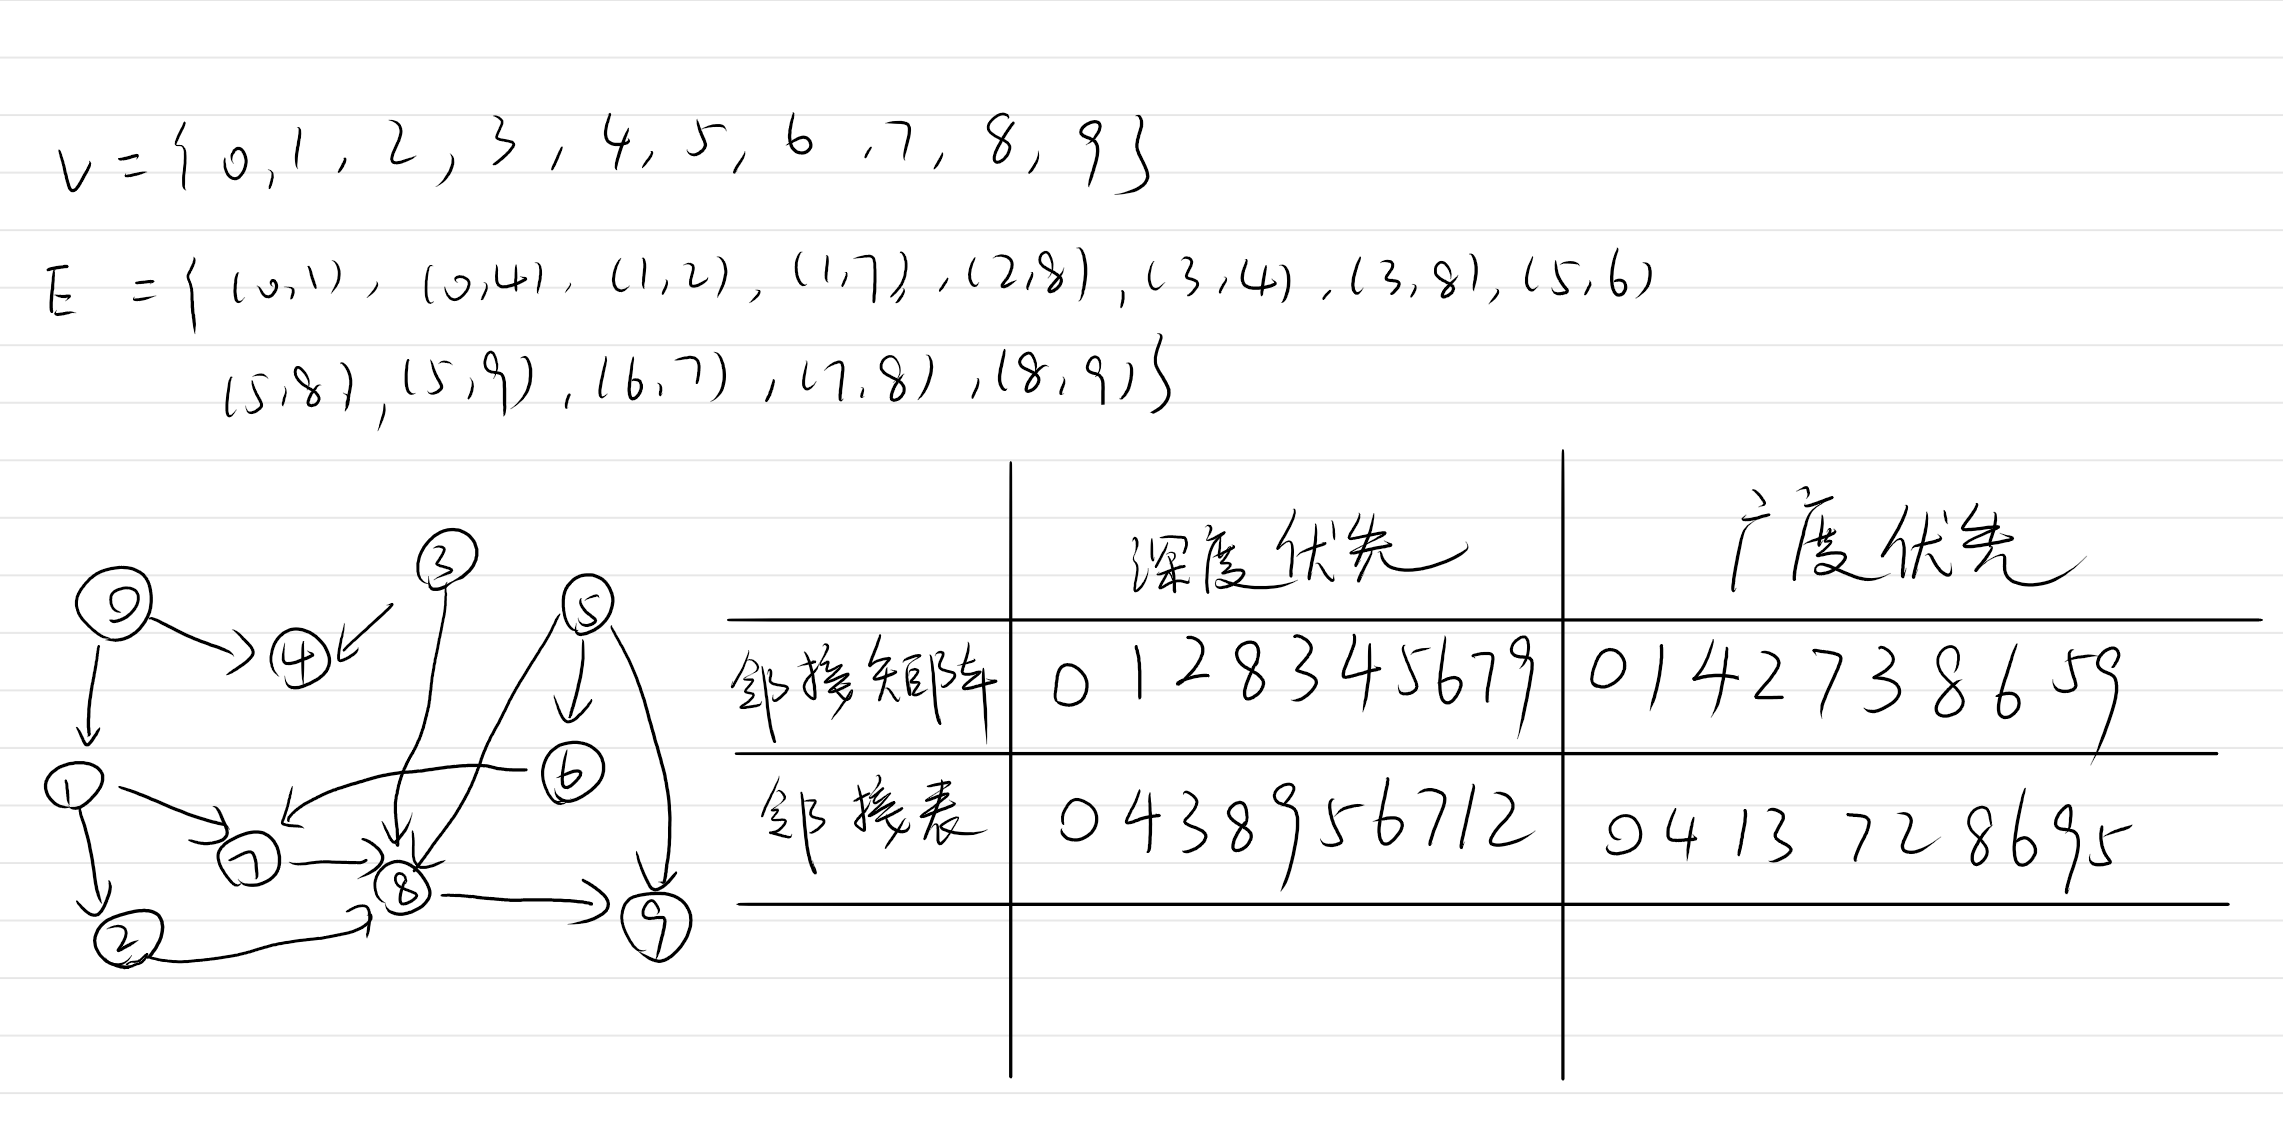 V = { 0, 1, 2, 3, 4, 5, 6, 7, 8, 9 }
E = { (0,1), (0,4), (1,2), (1,7), (2,8), (3,4), (3,8), (5,6)
(5,8), (5,9), (6,7), (7,8), (8,9) }
深度优先 广度优先
邻接矩阵 0 1 2 8 3 4 5 6 7 9 0 1 4 2 7 3 8 6 5 9
邻接表 0 4 3 8 9 5 6 7 1 2 0 4 1 3 7 2 8 6 9 5
3
0
5
4
6
1
7
8
9
2